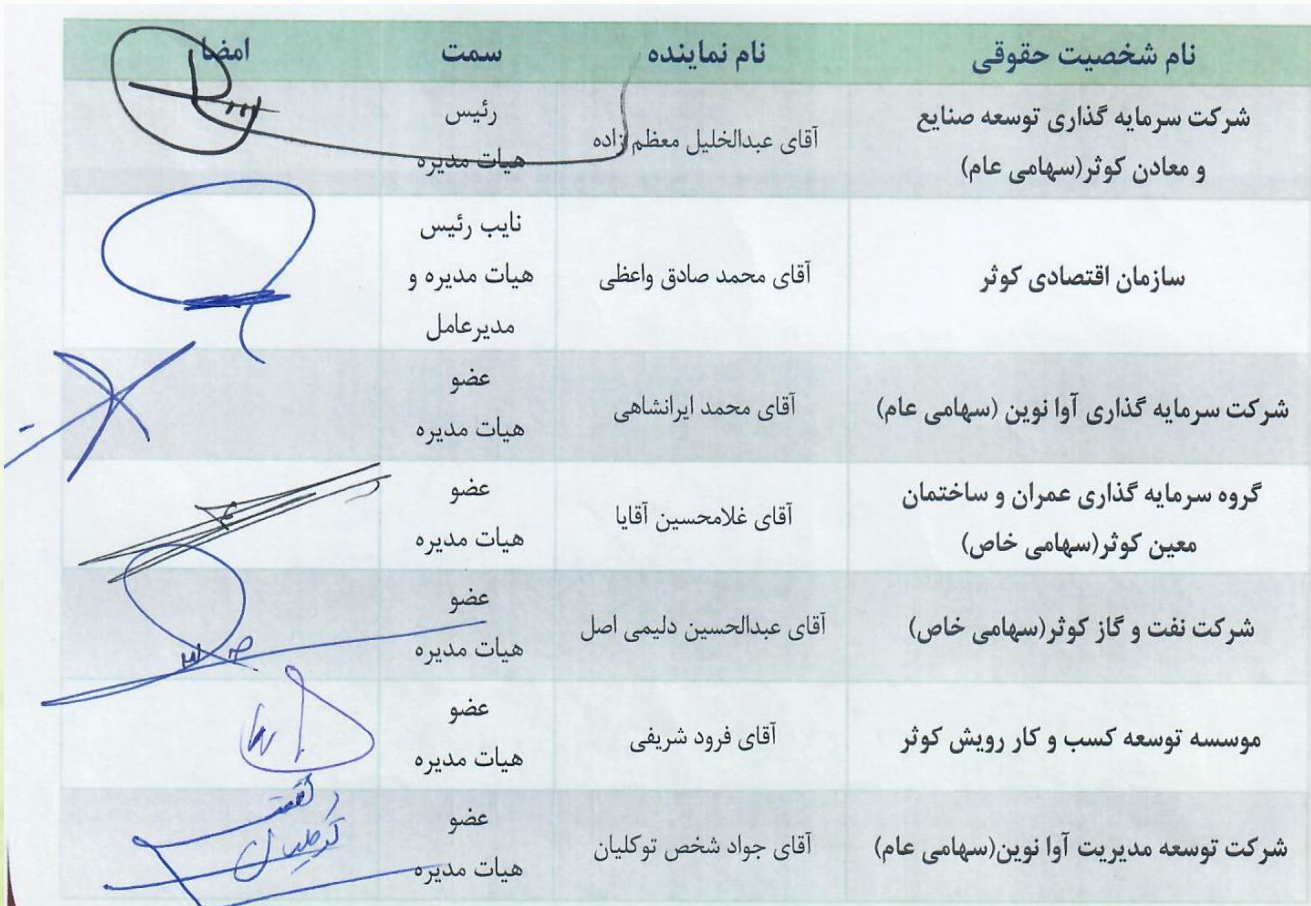 نام شخصیت حقوقی نام نماینده سمت امضا
شرکت سرمایه گذاری توسعه صنایع
و معادن کوثر(سهامی عام)
آقای عبدالخلیل معظم زاده
رئیس
هیات مدیره
سازمان اقتصادی کوثر
آقای محمد صادق واعظی
نایب رئیس
هیات مدیره و
مدیرعامل
شرکت سرمایه گذاری آوا نوین (سهامی عام)
آقای محمد ایرانشاهی
عضو
هیات مدیره
گروه سرمایه گذاری عمران و ساختمان
معین کوثر(سهامی خاص)
آقای غلامحسین آقایا
عضو
هیات مدیره
شرکت نفت و گاز کوثر(سهامی خاص)
آقای عبدالحسین دلیمی اصل
عضو
هیات مدیره
موسسه توسعه کسب و کار رویش کوثر
آقای فرود شریفی
عضو
هیات مدیره
شرکت توسعه مدیریت آوا نوین(سهامی عام)
آقای جواد شخص توکلیان
عضو
هیات مدیره